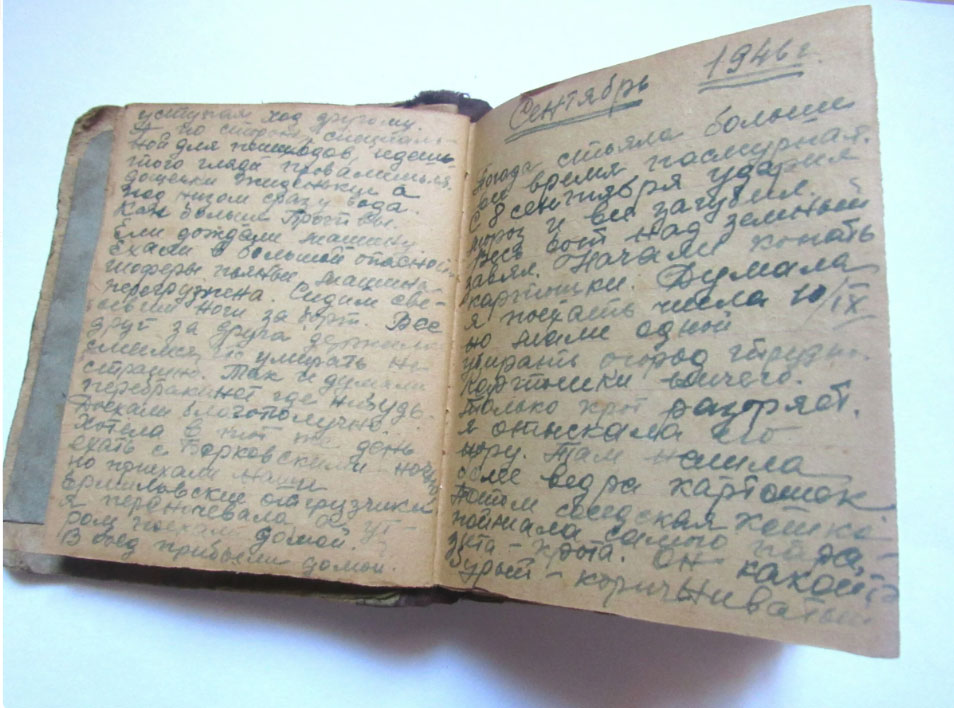 уступая ход другому.
А по стороне специаль-
ной для пешеходов, идешь
того гляди провалишься
дощечки жиденькие а
под низом сразу вода.
Как больше
Ели дождали машину.
Ехали в большой опасности
шоферы пьяные, машина
перегружена. Сидим све-
сивши ноги за борт. Все
друг за друга держимся
смеемся что умирать не
страшно. Так и думали
перебракинет где нибудь.
Доехали благополучно.
Хотела в тот же день
ехать с Борковскими
но приехали наши
ермиловские отагрузчики
я переначевала а ут-
ром поехала домой.
В обед прибыли домой.
Сентябрь 1946 г.
Погода стояла больше
все время пасмурная.
С 8 сентября ударил
мороз и все загубил.
весь бот над землей
завял. Начали копать
картошки. Думала
я поехать числа 10/IX
но маме одной
убирать огород трудно.
Картошки ничего.
Только крот
я отыскала его
нору. Там была
более ведра картошок
Потом соседская кошка
поймала самого пара-
зита - крота. Он какойто
бурый - коричниватый